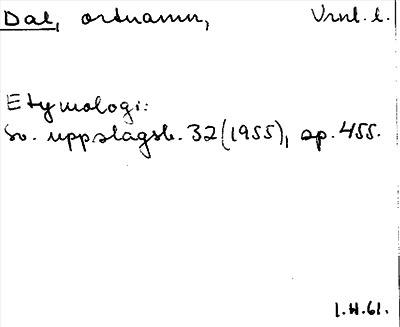 Dal, ortnamn, Vrml. l.
Etymologi:
Sv. uppslagsb. 32 (1955), sp. 455.
1.H.61.